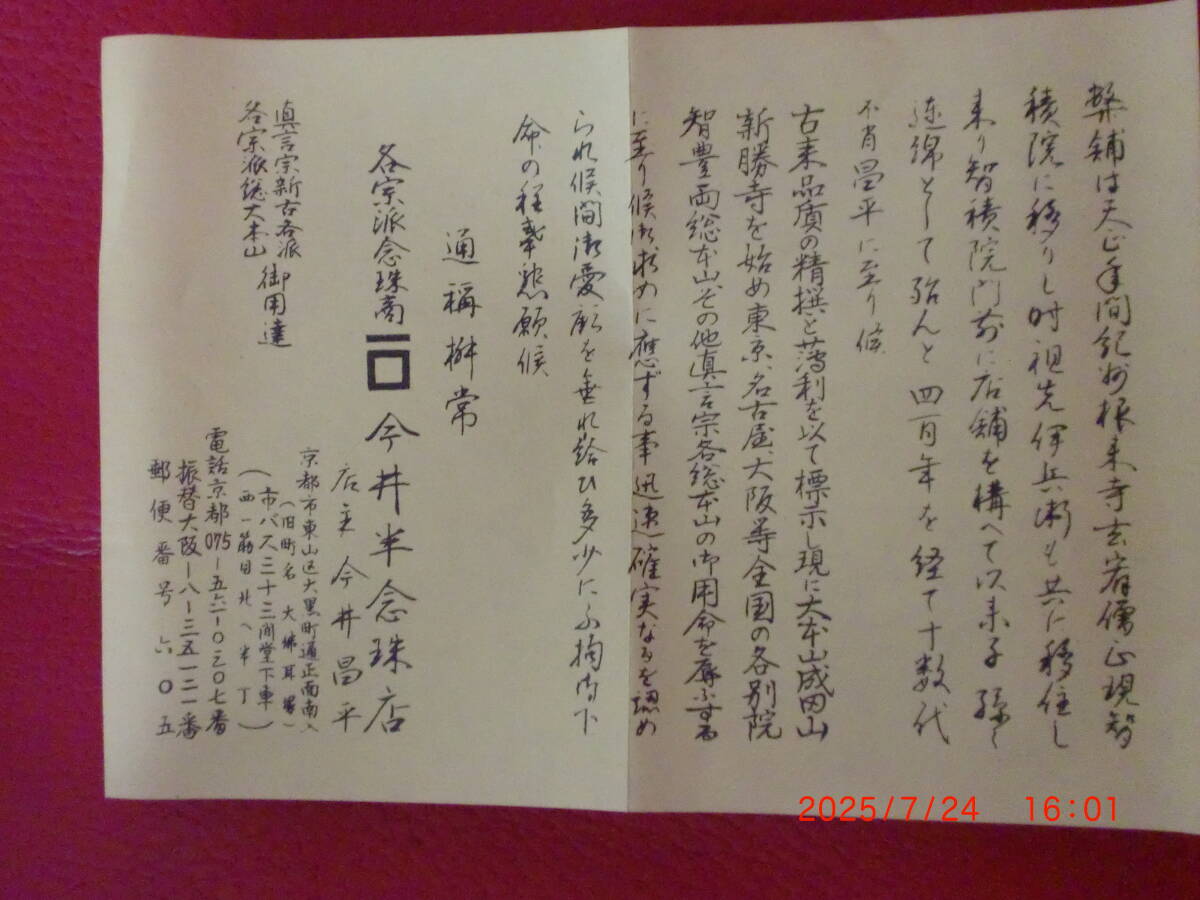 弊舗は天正年間紀州根来寺玄宥僧正現智
積院に移りし時祖先伊兵衛も共に移住し
来り智積院門前に店舗を構へて以来子孫々
連綿として殆んと四百年を経て十数代
不肖昌平に至り候
古来品質の精撰と薄利を以て標示し現に大本山成田山
新勝寺を始め東京、名古屋、大阪等全国の各別院
智豊両総本山その他真言宗各総本山の御用命を辱ふする
に至り候御求めに應ずる事迅速確実なるを認め
られ候間御愛顧を垂れ給ひ多少に不拘御下
命の程奉懇願候
通称桝常
各宗派念珠商 今井半念珠店
店主 今井昌平
京都市東山区大黒町通正面南入
(旧町名 大佛耳塚)
(市バス三十三間堂下車)
(西一筋目北へ半丁)
電話京都075-五六一-0二0七番
振替大阪-八-三五一二一番
郵便番号六0五
真言宗新古各派
各宗派総大本山
御用達
2025/7/24 16:01